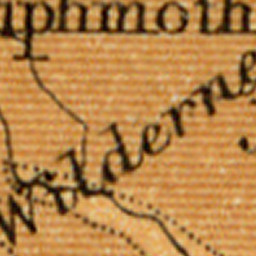 uphmoth
Wilderne